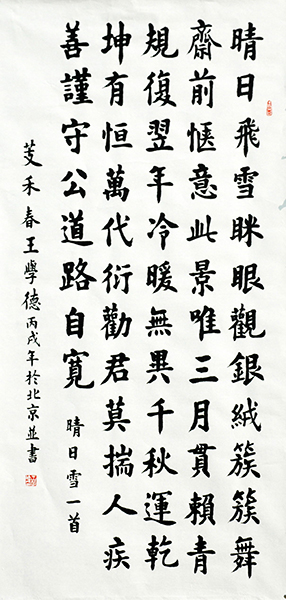 晴日飛雪眯眼觀銀絨簇簇舞
齋前愜意此景唯三月貫賴青
規復翌年冷暖無異千秋運乾
坤有恒萬代衍勸君莫揣人疾
善謹守公道路自寬
晴日雪一首
芰禾春王學德丙戌年於北京並書